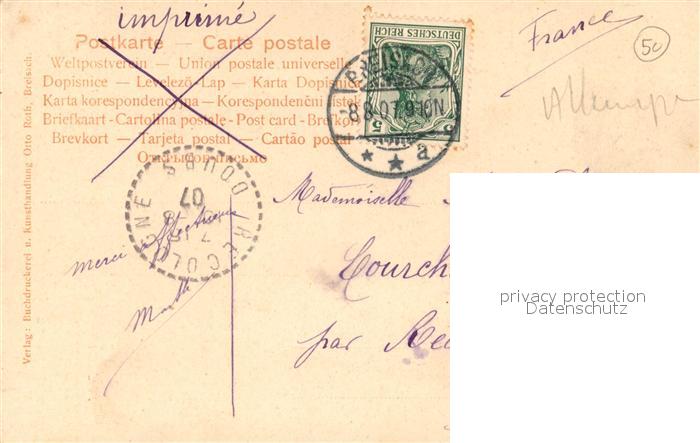 imprimé
France
50
Postkarte — Carte postale
Weltpostverein — Union postale universelle
Dopisnice — Levelező-Lap — Karta Dopisnica
Karta korespondencyjna — Korespondenční lístek
Briefkaart - Cartolina postale - Post card - Brefkort
Brevkort — Tarjeta postal — Cartão postal
Открытое письмо
DEUTSCHES REICH
5 5
8.8.07.9-10N
* * a
Allemagne
RECOLOGNE DOUBS
07
Mademoiselle
merci affectueux
Courch
par Rec
privacy protection
Datenschutz
Verlag: Buchdruckerei u. Kunsthandlung Otto Roth, Breisach.